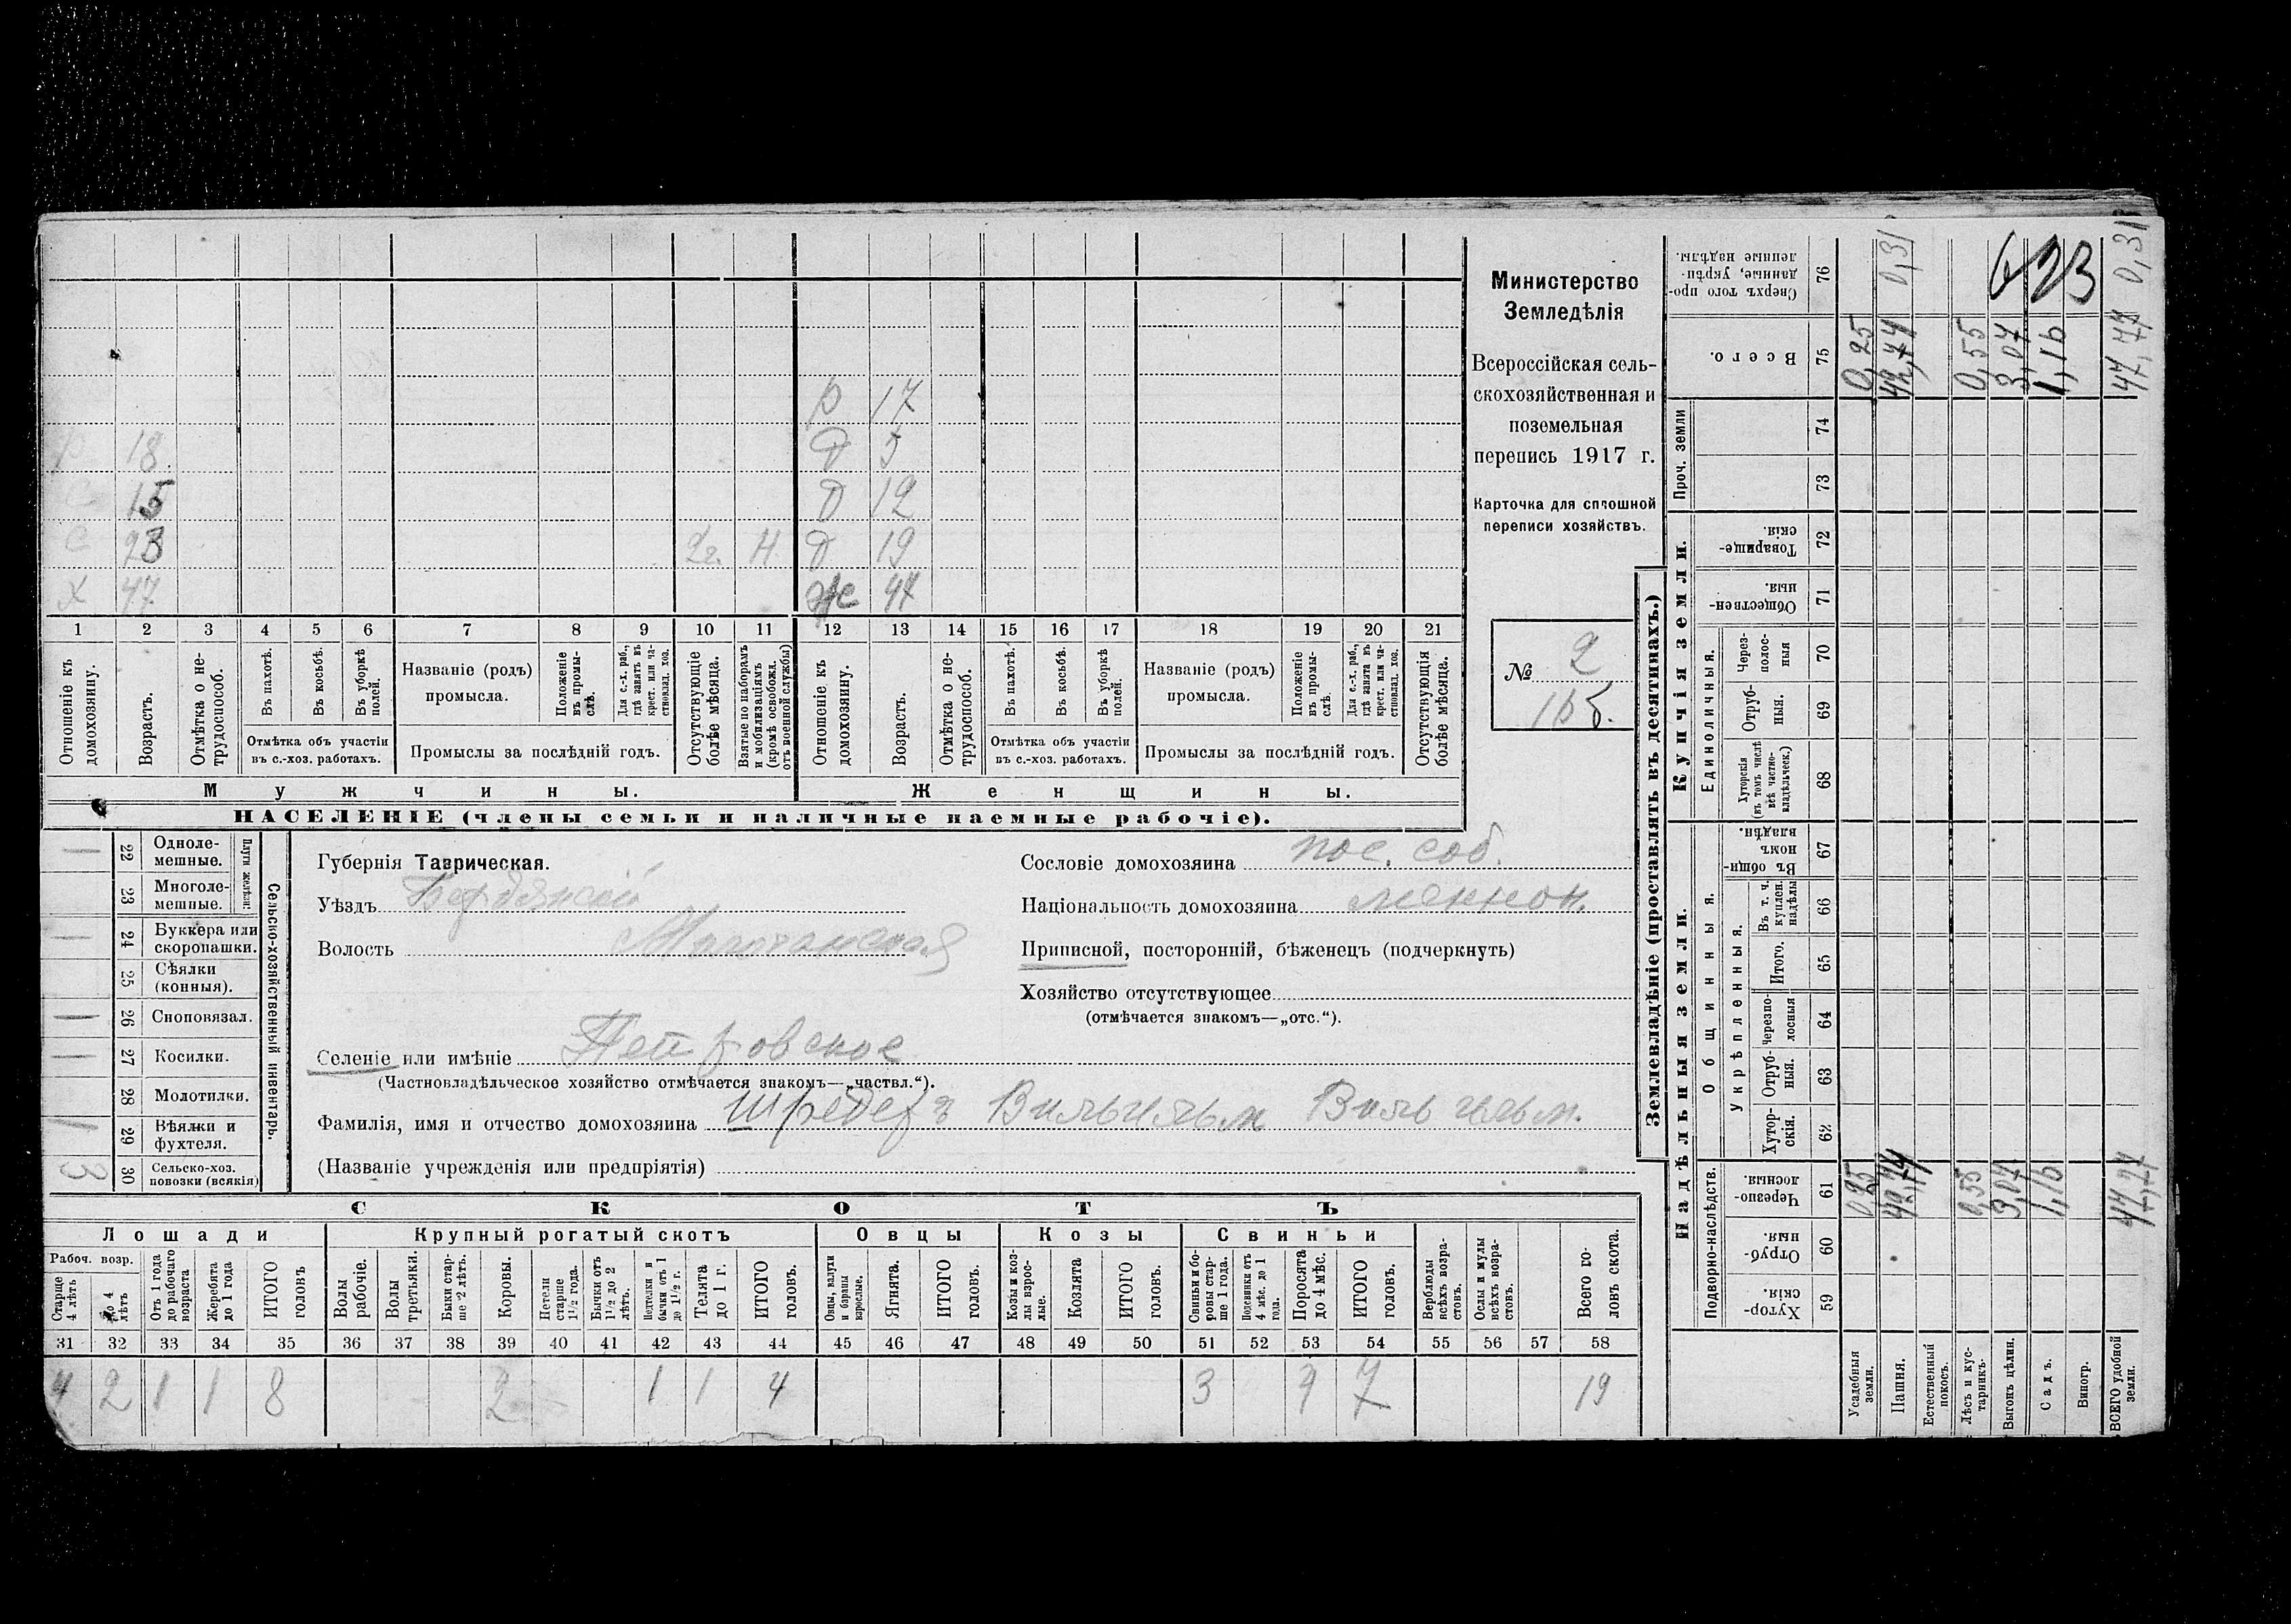 р 17
р 18 д 5
с 15 д 12
с 23 2 г. Н д 19
х 47 Же 47
1 2 3 4 5 6 7 8 9 10 11 12 13 14 15 16 17 18 19 20 21
Отношеніе къ домохозяину.
Возрастъ.
Отмѣтка о нетрудоспособ.
Въ пахотѣ.
Въ косьбѣ.
Въ уборкѣ полей.
Отмѣтка объ участіи въ с.-хоз. работахъ.
Названіе (родъ) промысла.
Положеніе въ промыслѣ.
Для с.-х. раб., гдѣ занятъ въ крест. или частновлад. хоз.
Промыслы за послѣдній годъ.
Отсутствующіе болѣе мѣсяца.
Взятые по наборамъ и мобилизаціямъ (кромѣ освобожл. отъ военной службы)
Отношеніе къ домохозяину.
Возрастъ.
Отмѣтка о нетрудоспособ.
Въ пахотѣ.
Въ косьбѣ.
Въ уборкѣ полей.
Отмѣтка объ участіи въ с.-хоз. работахъ.
Названіе (родъ) промысла.
Положеніе въ промыслѣ.
Для с.-х. раб., гдѣ занята въ крест. или частновлад. хоз.
Промыслы за послѣдній годъ.
Отсутствующія болѣе мѣсяца.
Мужчины.
Женщины.
НАСЕЛЕНІЕ (члены семьи и наличные наемные рабочіе).
Министерство
Земледѣлія
Всероссійская сель-
скохозяйственная и
поземельная
перепись 1917 г.
Карточка для сплошной
переписи хозяйствъ.
№ 2
1 р б.
Сельско-хозяйственный инвентарь.
Плуги желѣзн.
1 22 Одноле-мешные.
23 Многоле-мешные.
1 24 Буккера или скоропашки.
25 Сѣялки (конныя).
1 26 Сноповязал.
1 27 Косилки.
28 Молотилки.
1 29 Вѣялки и фухтеля.
3 30 Сельско-хоз. повозки (всякія)
Губернія Таврическая.
Уѣздъ Бердянскій
Волость Молочанская
Селеніе или имѣніе Петровское
(Частновладѣльческое хозяйство отмѣчается знакомъ—„частвл.“).
Фамилія, имя и отчество домохозяина Шредеръ Вильгельм Вильгельм.
(Названіе учрежденія или предпріятія)
Сословіе домохозяина пос. соб.
Національность домохозяина меннон.
Приписной, посторонній, бѣженецъ (подчеркнуть)
Хозяйство отсутствующее
(отмѣчается знакомъ—„отс.“).
СКОТЪ
Лошади
Крупный рогатый скотъ
Овцы
Козы
Свиньи
Рабоч. возр.
Старше 4 лѣтъ
До 4 лѣтъ
Отъ 1 года до рабочаго возраста
Жеребята до 1 года
ИТОГО головъ
Волы рабочіе.
Волы третьяки.
Быки старше 2 лѣтъ.
Коровы.
Нетели старше 1½ года.
Бычки отъ 1½ до 2 лѣтъ.
Нетелки и бычки отъ 1 до 1½ г.
Телята до 1 г.
ИТОГО головъ.
Овцы, валухи и бараны взрослые.
Ягнята.
ИТОГО головъ.
Козы и козлы взрослые.
Козлята
ИТОГО головъ.
Свиньи и боровы старше 1 года.
Подсвинки отъ 4 мѣс. до 1 года.
Поросята до 4 мѣс.
ИТОГО головъ.
Верблюды всѣхъ возрастовъ.
Ослы и мулы всѣхъ возрастовъ.
Всего головъ скота.
31 32 33 34 35 36 37 38 39 40 41 42 43 44 45 46 47 48 49 50 51 52 53 54 55 56 57 58
4 2 1 1 8 2 1 1 4 3 7 19
Землевладѣніе (проставлять въ десятинахъ.)
Надѣльныя земли.
Купчія земли.
Проч. земли
Подворно-наслѣдств.
Общинныя.
Укрѣпленныя.
Единоличныя.
Хуторскія. 59
Отрубныя. 60
Черезполосныя. 61
Хуторскія. 62
Отрубныя. 63
черезполосныя 64
Итого. 65
Въ т. ч. куплен. надѣлы 66
Въ общинномъ владѣн. 67
Хуторскія (въ томъ числѣ всѣ частновладѣльческ.) 68
Отрубныя. 69
Черезполосныя 70
Общественныя. 71
Товарищескія. 72
73
74
Всего. 75
Сверхъ того проданные, укрѣпленные надѣлы. 76
Усадебныя земли. 0,25 0,25
Пашня. 42,74 42,74 0,31
Естественный покосъ.
Лѣсъ и кустарникъ. 0,55 0,55
Выгонъ цѣлин. 3,07 3,07
Садъ. 1,16 1,16
Виногр.
ВСЕГО удобной земли. 47,77 47,77 0,31
623